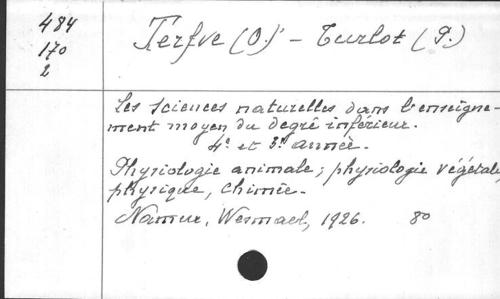 484
170
2
Terfve (O.) - Turlot (P.)
Les sciences naturelles dans l'enseigne-
ment moyen du degré inférieur.
4e et 3e année.
Physiologie animale; physiologie végétale,
physique, chimie.
Namur, Wesmael, 1926. 8o